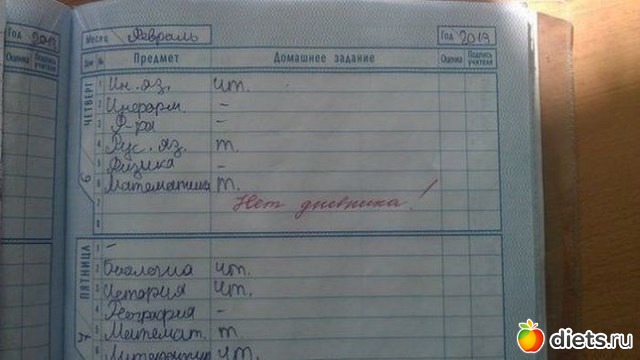 Год 2013
Оценка Подпись учителя
Месяц Февраль Год 2013
Дни № Предмет Домашнее задание Оценка Подпись учителя
ЧЕТВЕРГ
6
1 Ин. яз. чт.
2 Информ. -
3 Ф-ра -
4 Рус. яз. т.
5 Физика -
6 Математика т.
7 Нет дневника!
8
ПЯТНИЦА
1 -
2 Биология чт.
3 История чт.
4 География -
5 Математ. т
6 Литература чт.
diets.ru